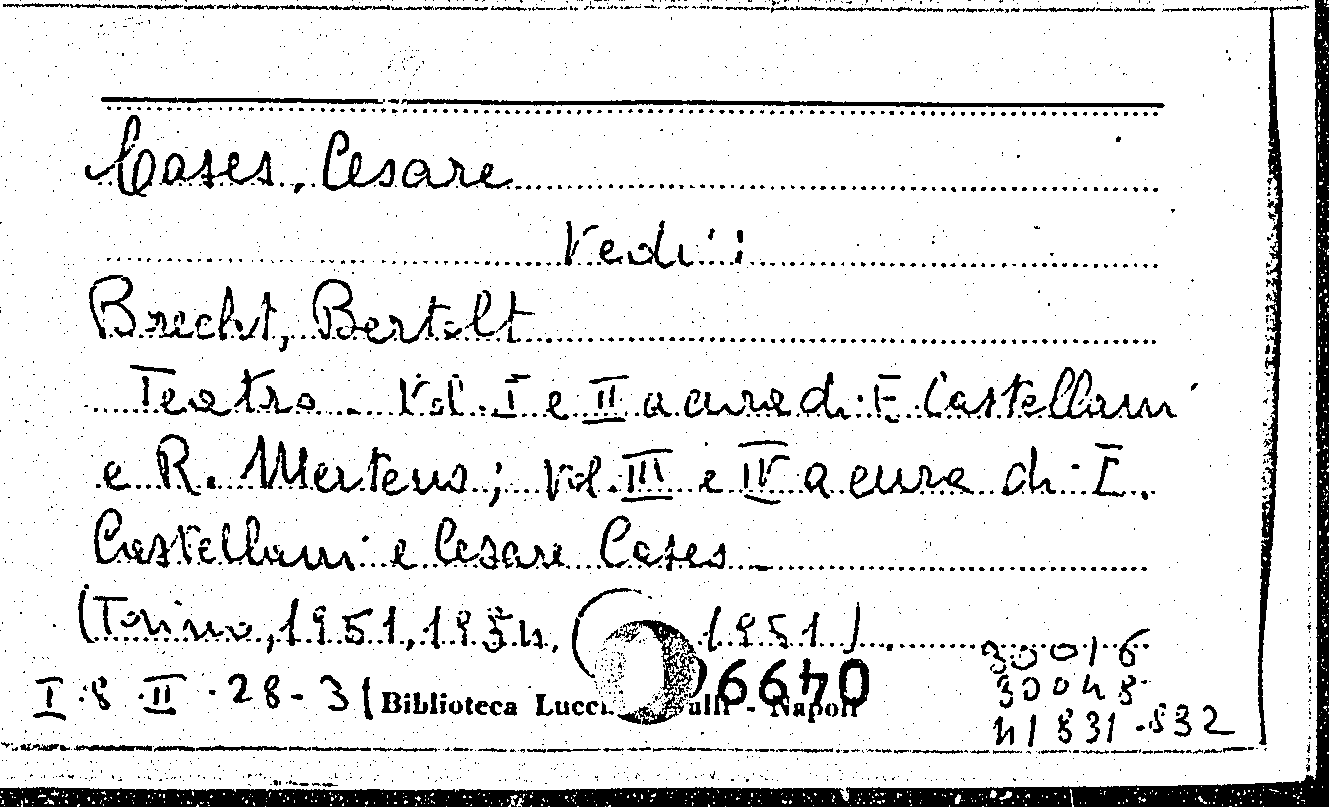 Cases, Cesare
Vedi:
Brecht, Bertolt
Teatro. Vol. I e II a cura di E. Castellani
e R. Mertens; Vol. III e IV a cura di E.
Castellani e Cesare Cases.
(Torino, 1951, 1954, 1951).
30016
30048
I.8.II.28-31 Biblioteca Napoli 26640
41831-832